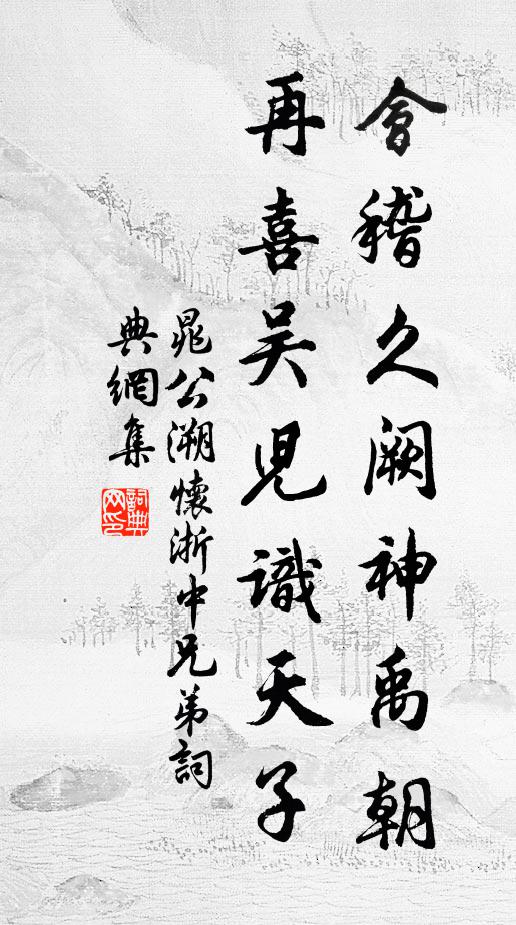 會稽久闕神禹朝
再喜吴兒識天子
晁公溯懷浙中兄弟詞
典網集
詞典
网印